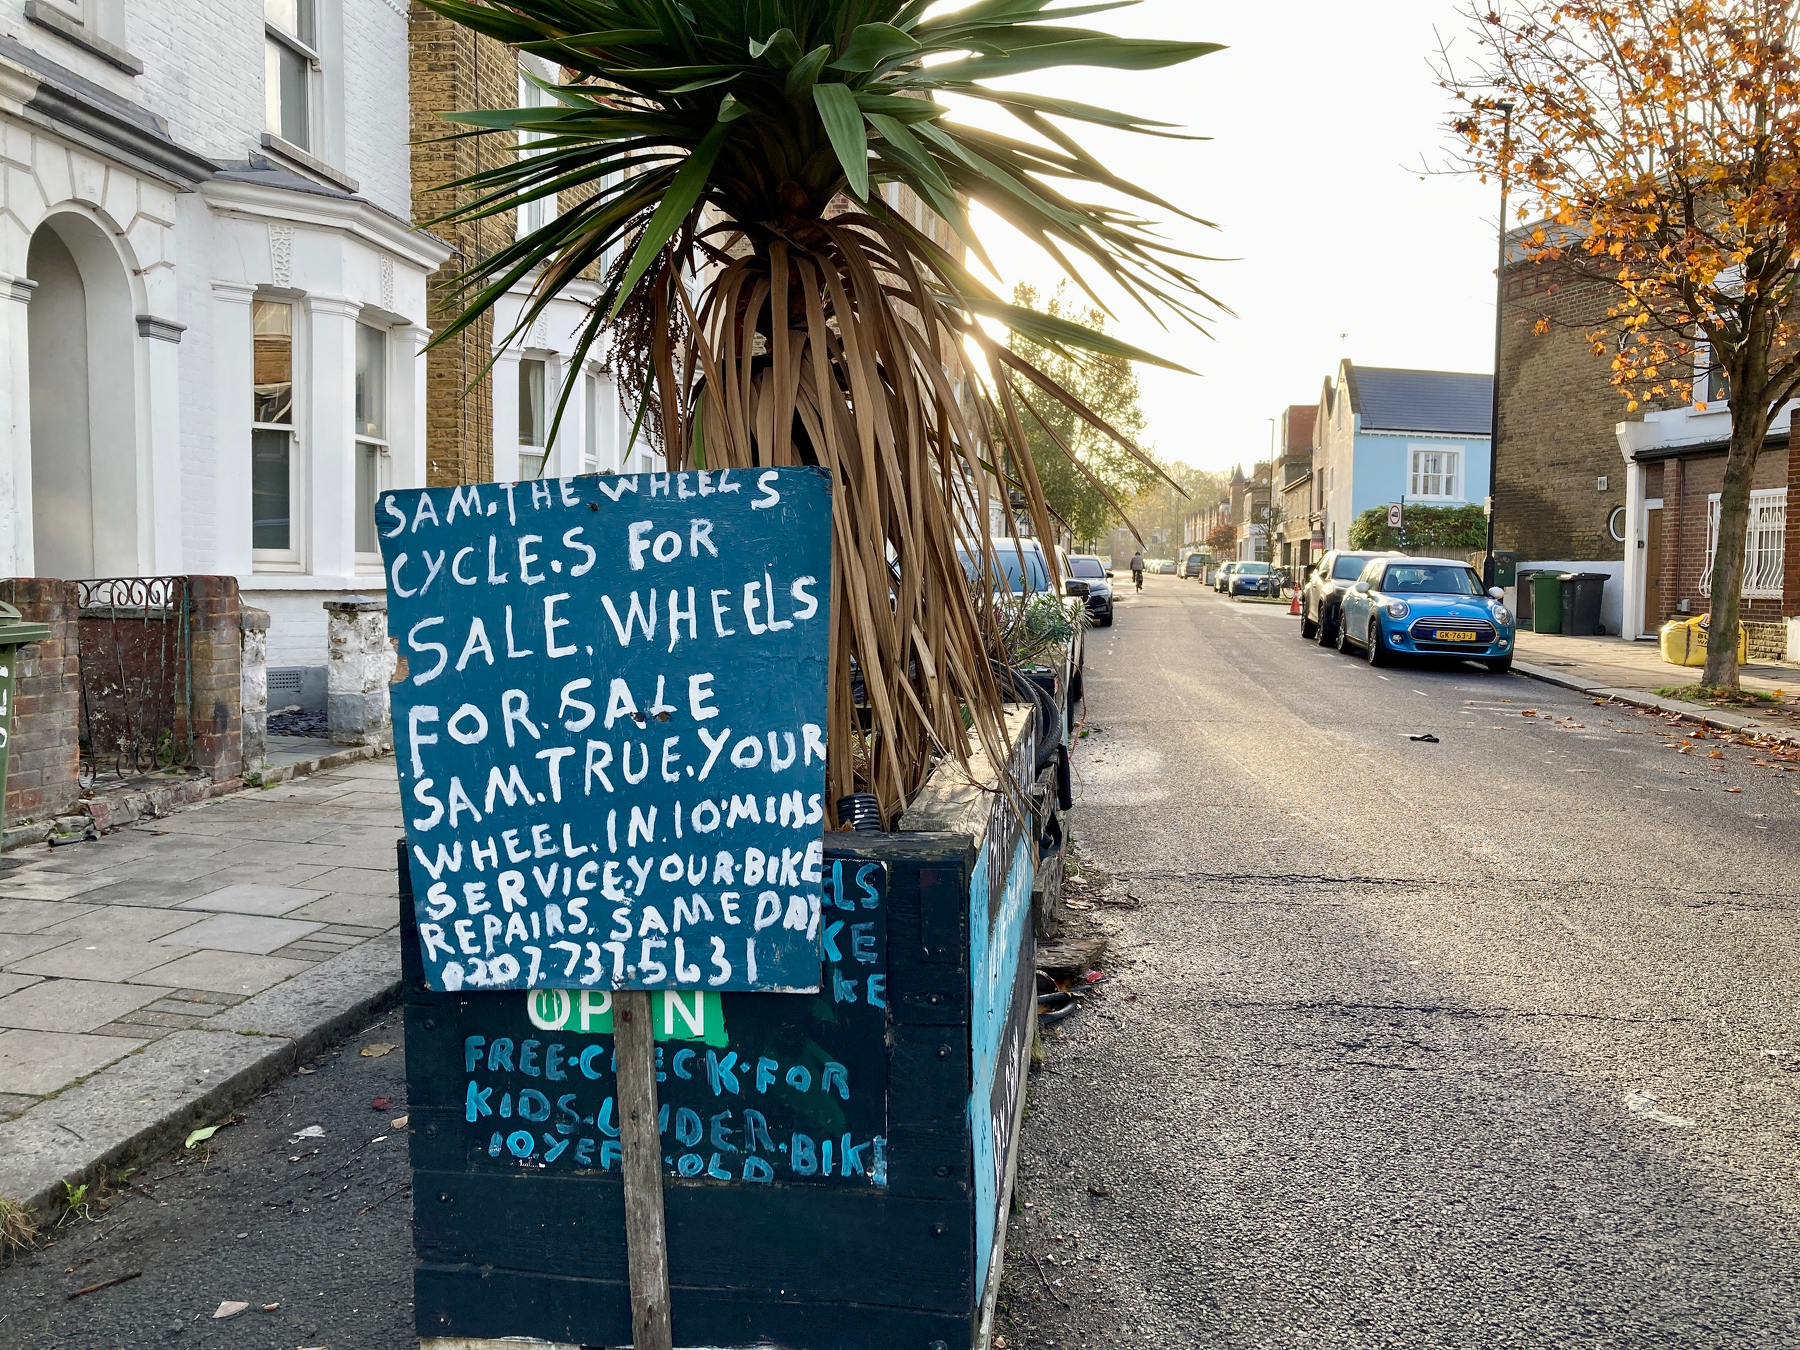 SAM.THE WHEELS
CYCLE.S FOR
SALE. WHEELS
FOR.SALE
SAM.TRUE.YOUR
WHEEL.IN.10.MINS
SERVICE.YOUR.BIKE
REPAIRS. SAME DAY
0207.737.5631
ELS
KE
KE
OP N
FREE.C ECK.FOR
KIDS.UNDER.BIKE
10.YER.OLD
GK-763-J